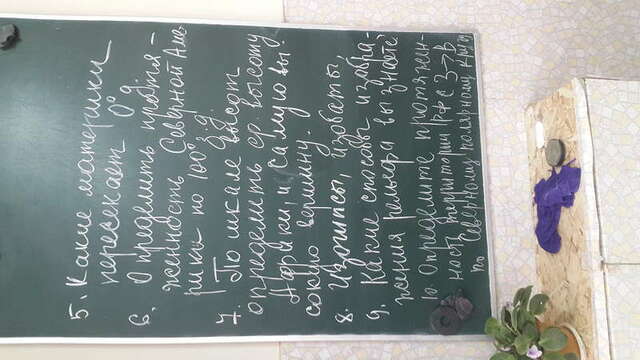 5. Какие материки
пересекает 0° д.
6. Определить протя-
женность Северной Аме-
рики по 100° з.д.
7. По шкале высот
определить ср. высоту
Африки, и самую вы-
сокую вершину.
8. Изогипсы, изобаты,
9. Какие способы изобра-
жения рельефа вы знаете?
10. Определите протяжен-
ность территории РФ с З→В
по Северному полярному кругу